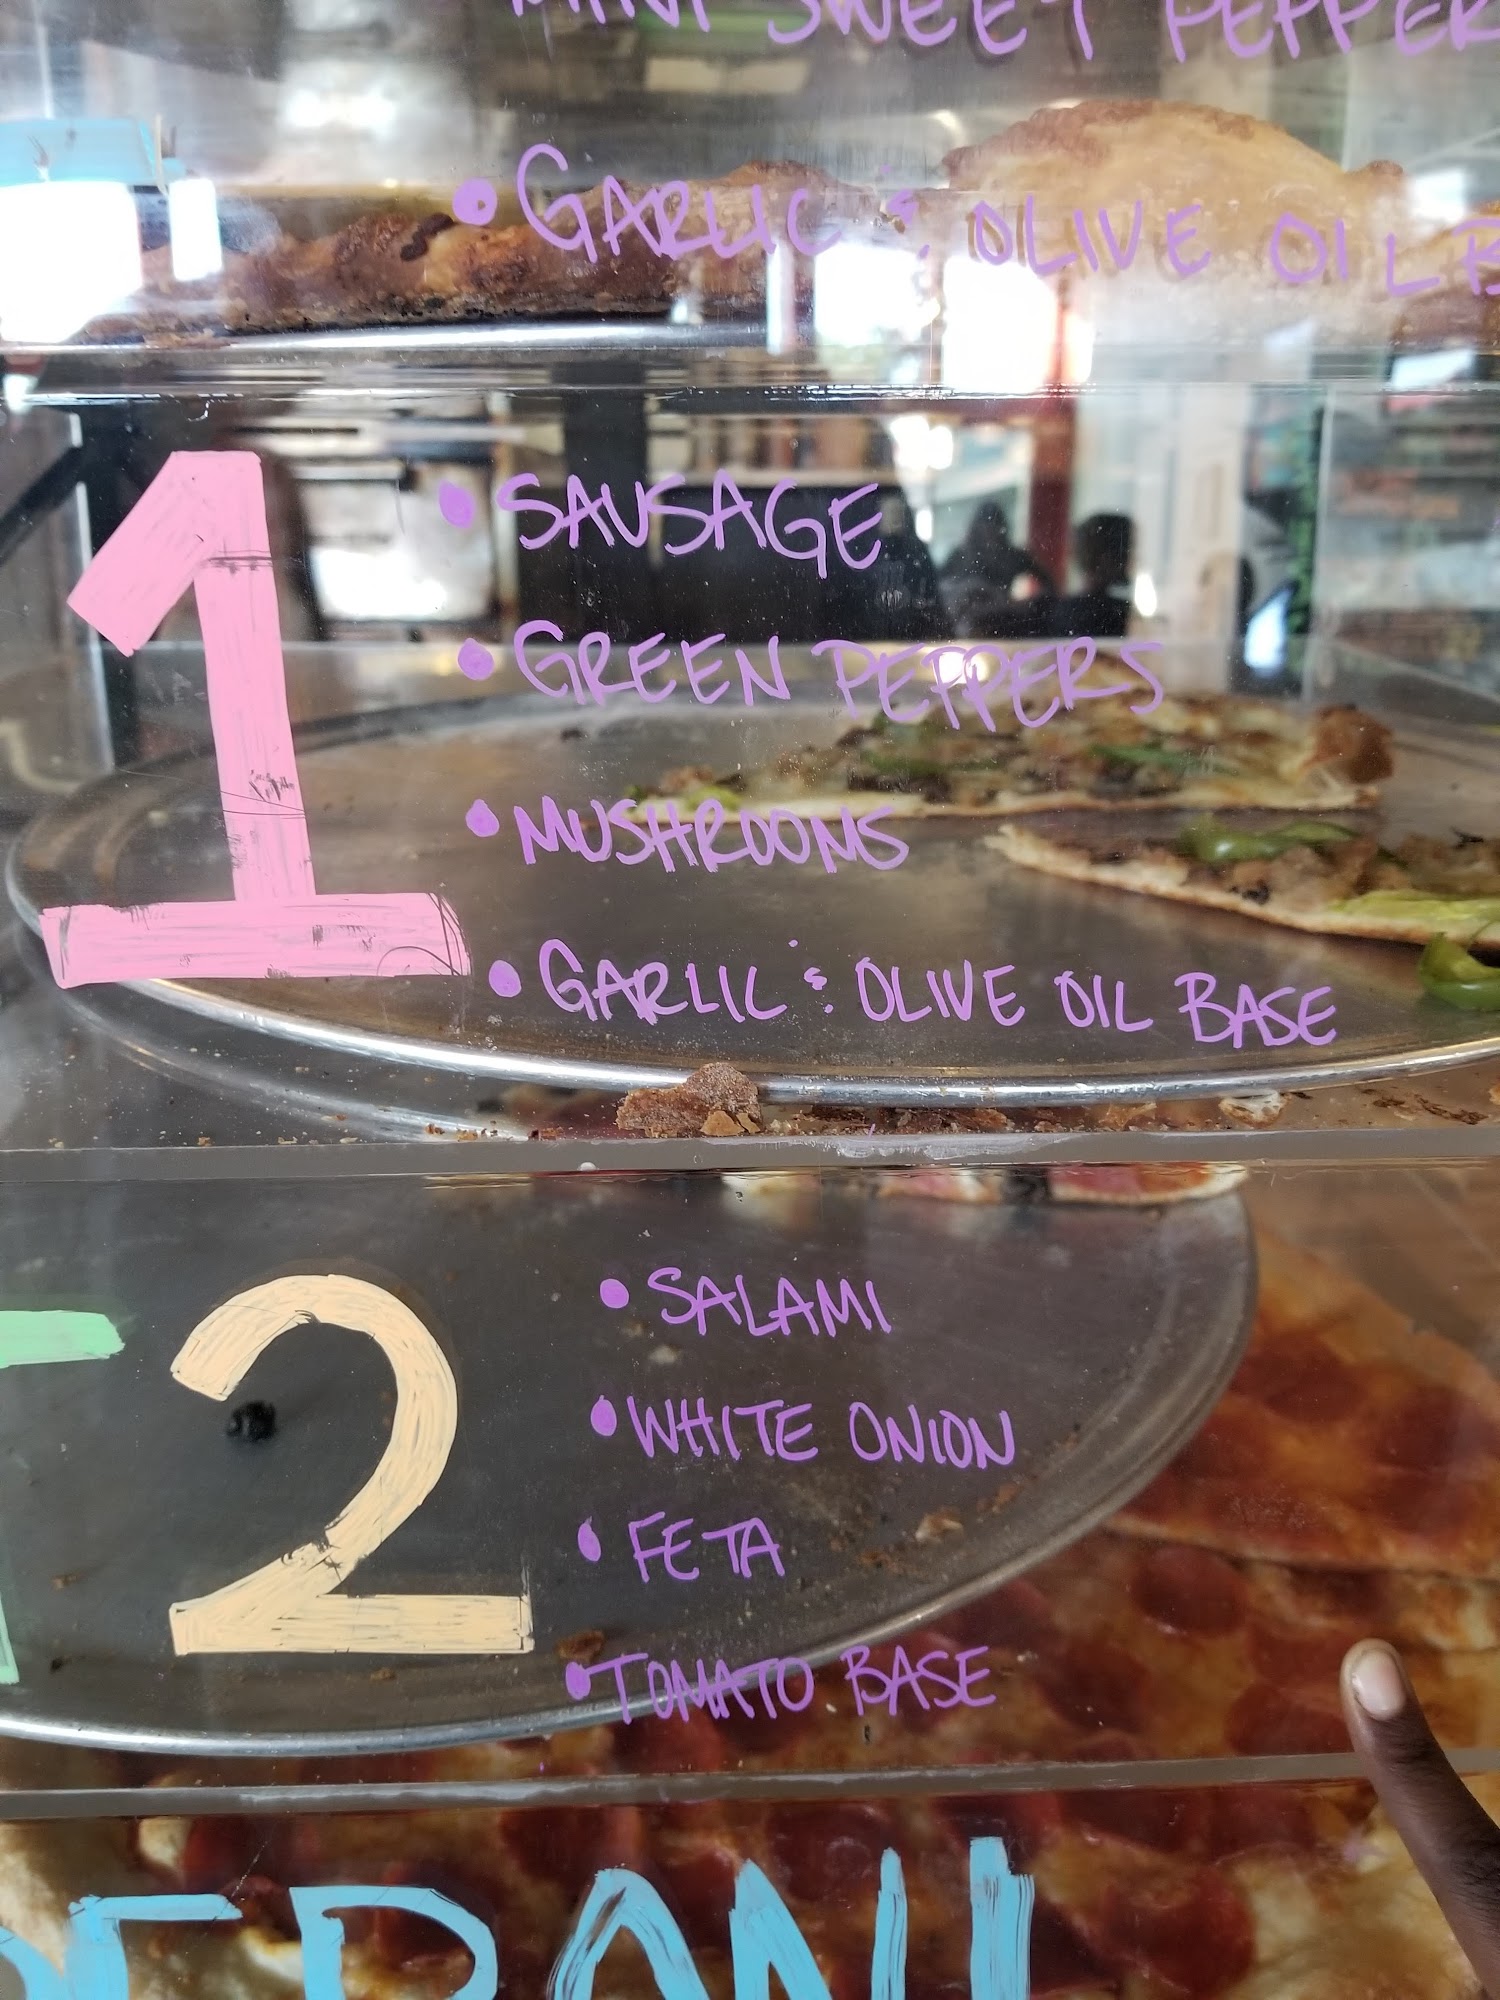 MINI SWEET PEPPER
• GARLIC & OLIVE OIL B
1
• SAUSAGE
• GREEN PEPPERS
• MUSHROOMS
• GARLIC & OLIVE OIL BASE
2
• SALAMI
• WHITE ONION
• FETA
• TOMATO BASE